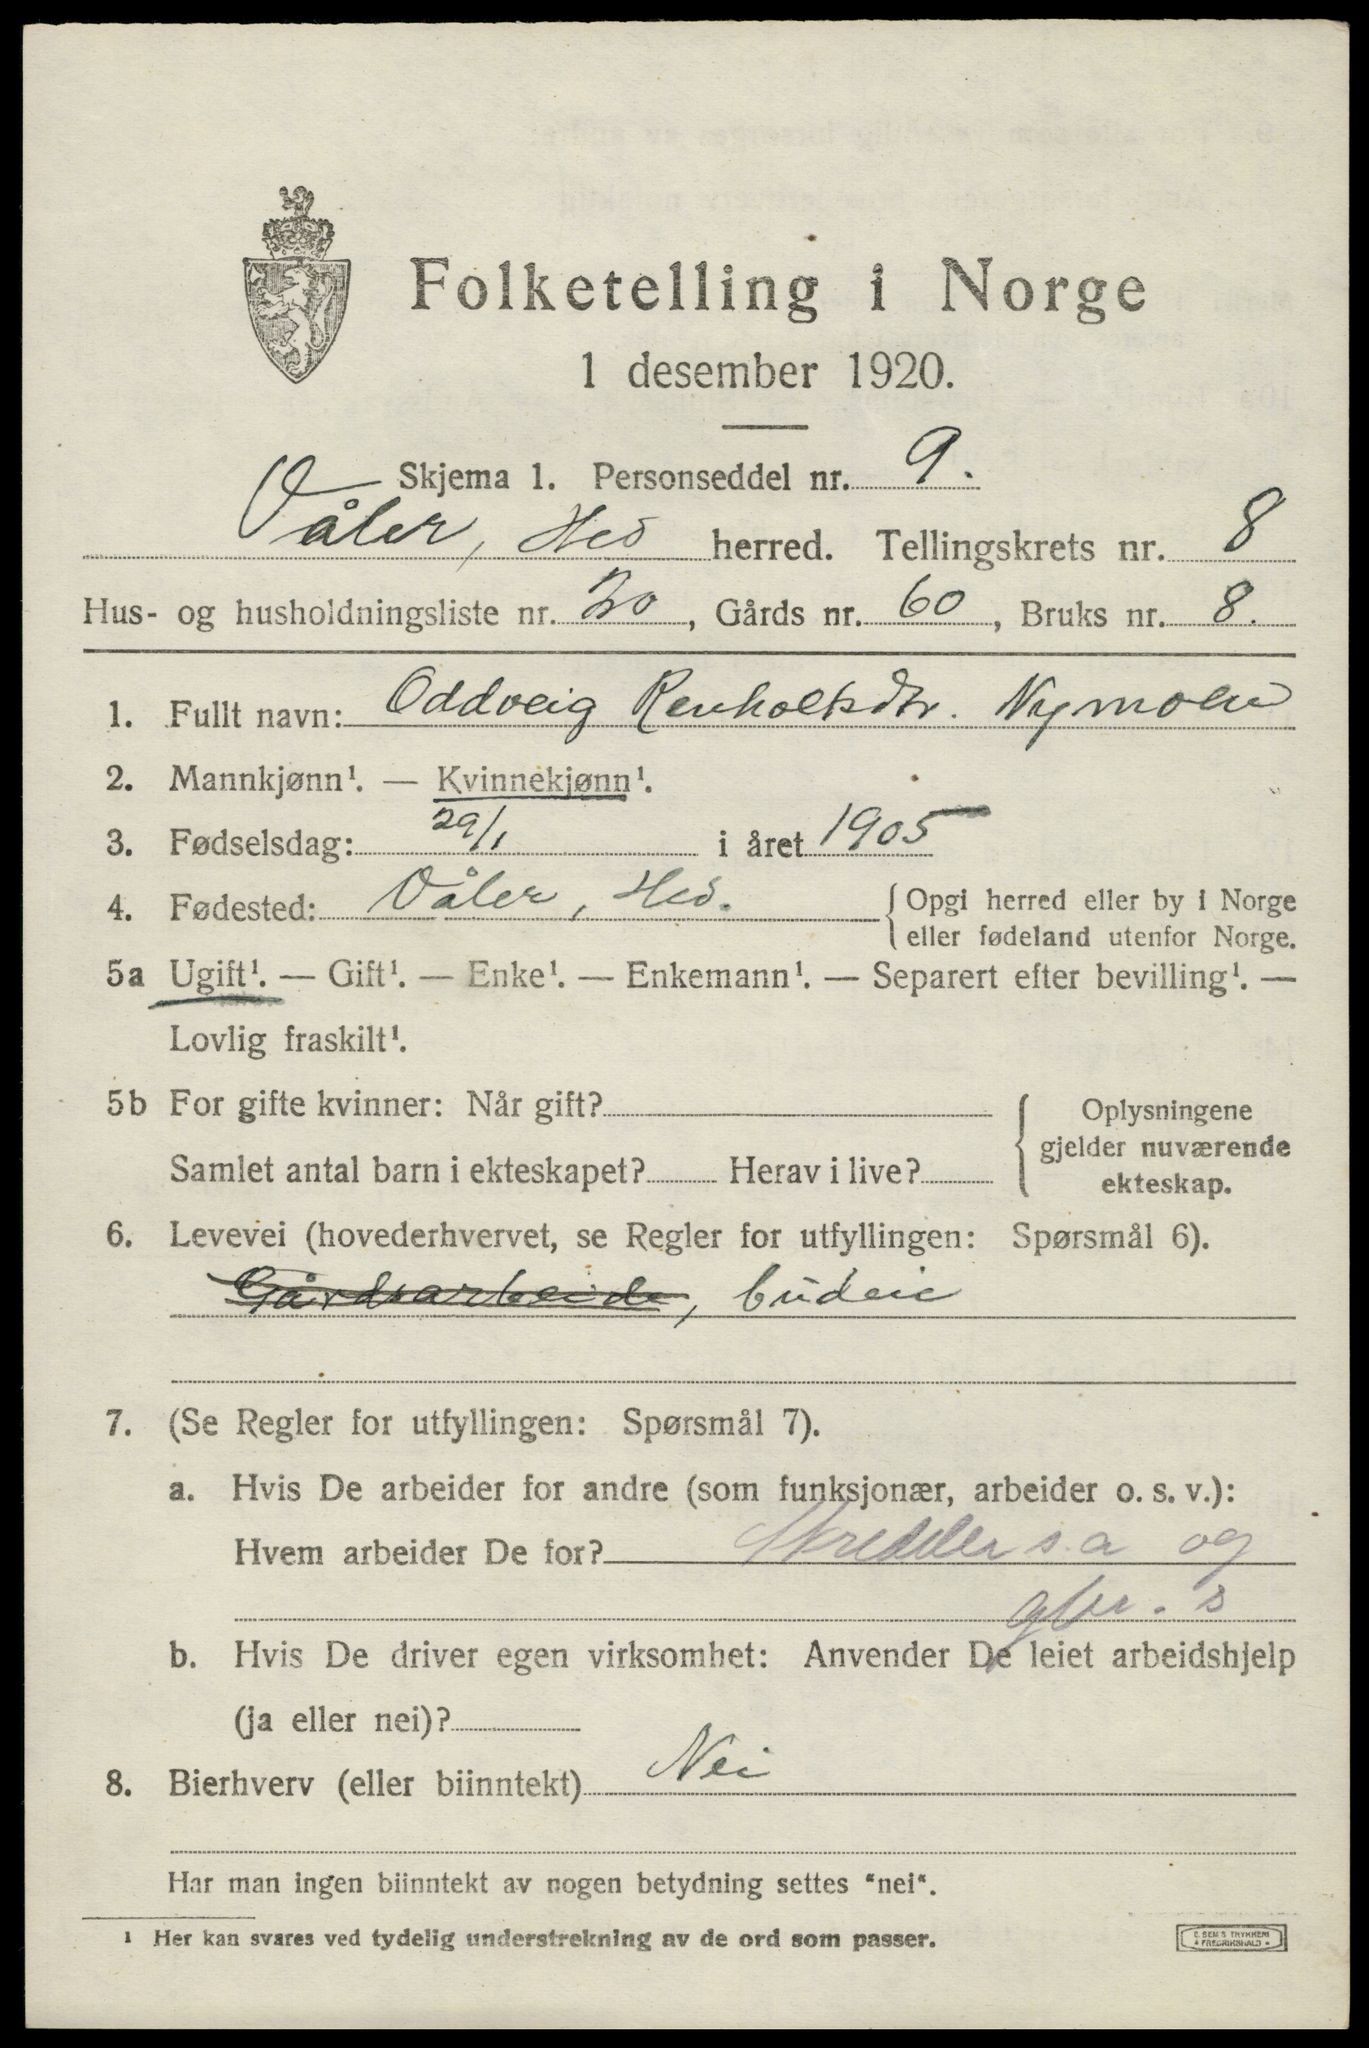 Folketelling i Norge
1 desember 1920.
Skjema 1. Personseddel nr. 9.
Våler, Hed herred. Tellingskrets nr. 8
Hus- og husholdningsliste nr. 20, Gårds nr. 60, Bruks nr. 8.
1. Fullt navn: Oddveig Renholtsdtr. Nymoen
2. Mannkjønn¹. — Kvinnekjønn¹.
3. Fødselsdag: 29/1 i året 1905
4. Fødested: Våler, Hed. { Opgi herred eller by i Norge
eller fødeland utenfor Norge.
5a Ugift¹. — Gift¹. — Enke¹. — Enkemann¹. — Separert efter bevilling¹. —
Lovlig fraskilt¹.
5b For gifte kvinner: Når gift?
Samlet antal barn i ekteskapet? Herav i live?
Oplysningene
gjelder nuværende
ekteskap.
6. Levevei (hovederhvervet, se Regler for utfyllingen: Spørsmål 6).
Gårdsarbeide, budeie
7. (Se Regler for utfyllingen: Spørsmål 7).
a. Hvis De arbeider for andre (som funksjonær, arbeider o. s. v.):
Hvem arbeider De for? Skredder s.a og
gbr. s
b. Hvis De driver egen virksomhet: Anvender De leiet arbeidshjelp
(ja eller nei)?
8. Bierhverv (eller biinntekt) Nei
Har man ingen biinntekt av nogen betydning settes "nei".
¹ Her kan svares ved tydelig understrekning av de ord som passer.
E. SEM'S TRYKKERI
FREDRIKSHALD